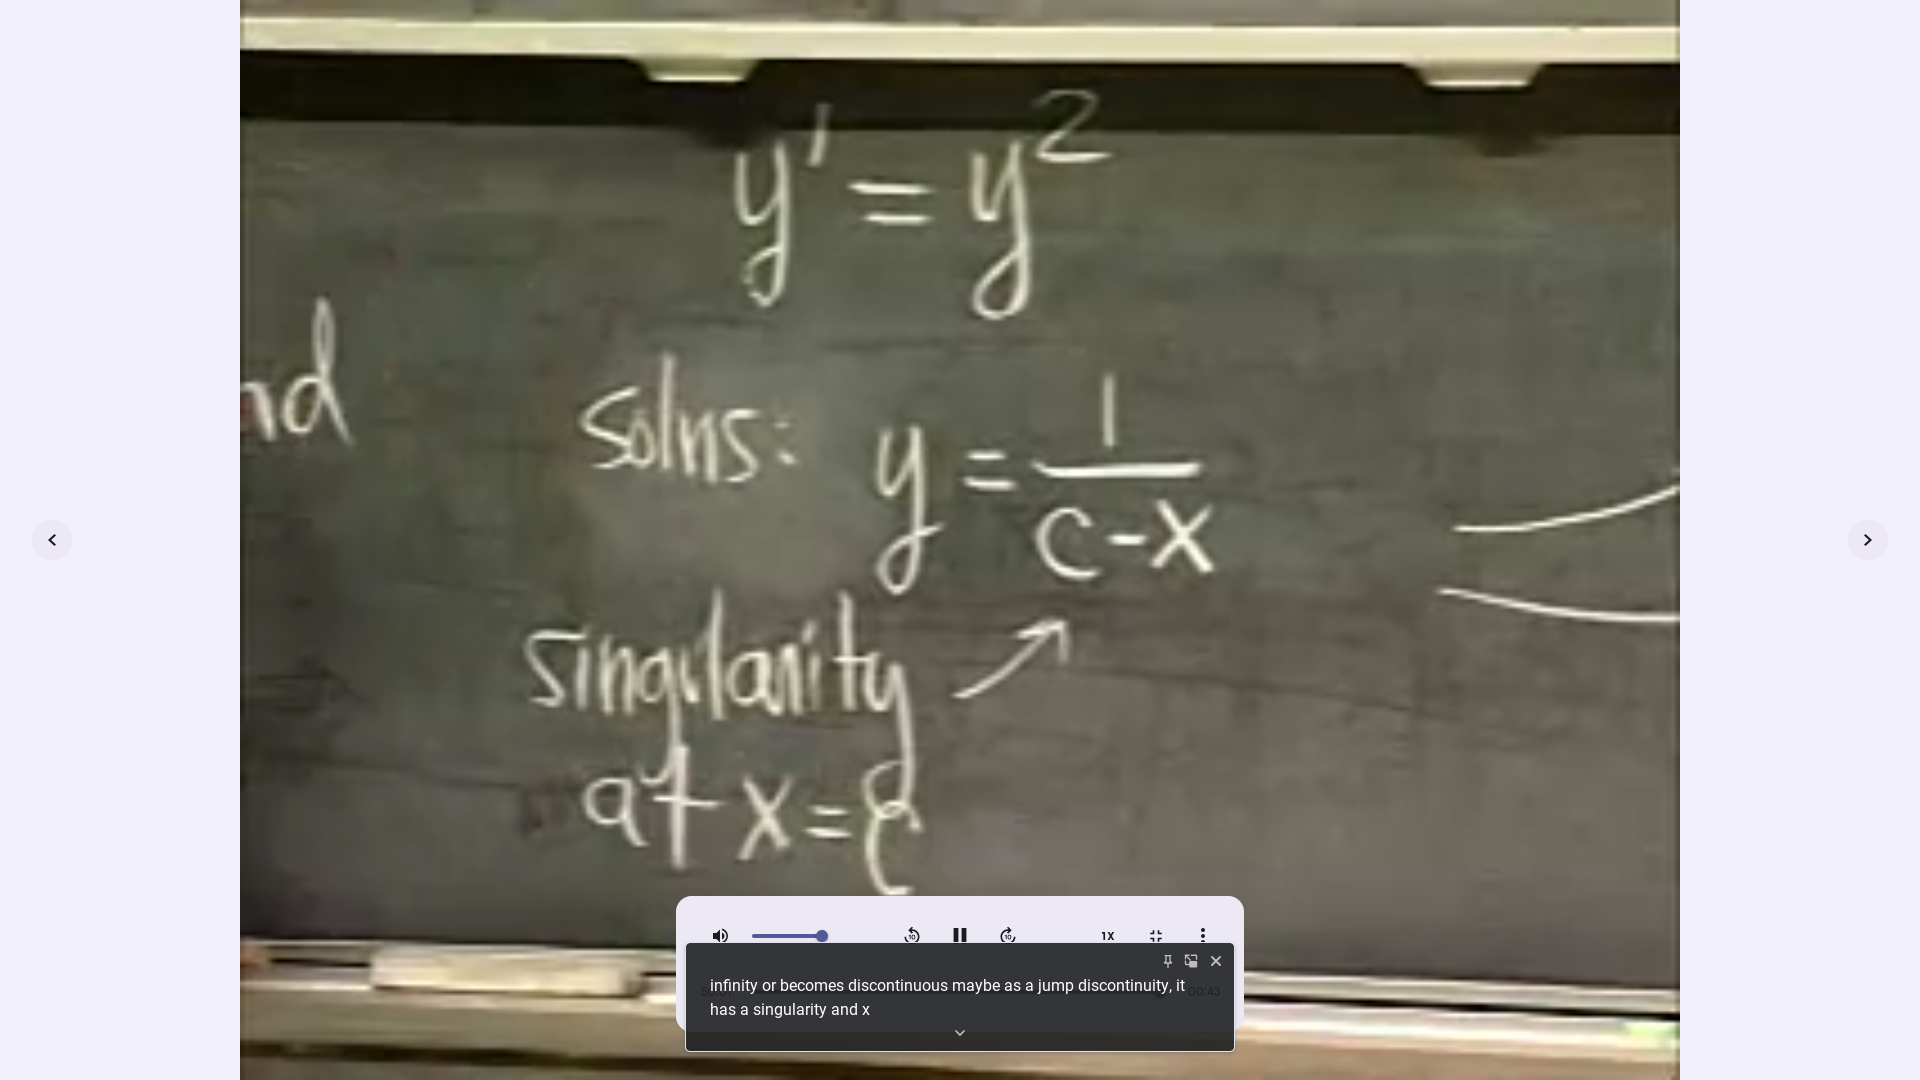 y' = y²
nd
Solns: y = 1/(c-x)
singularity
at x = c
10 10 1X
00:43
infinity or becomes discontinuous maybe as a jump discontinuity, it
has a singularity and x